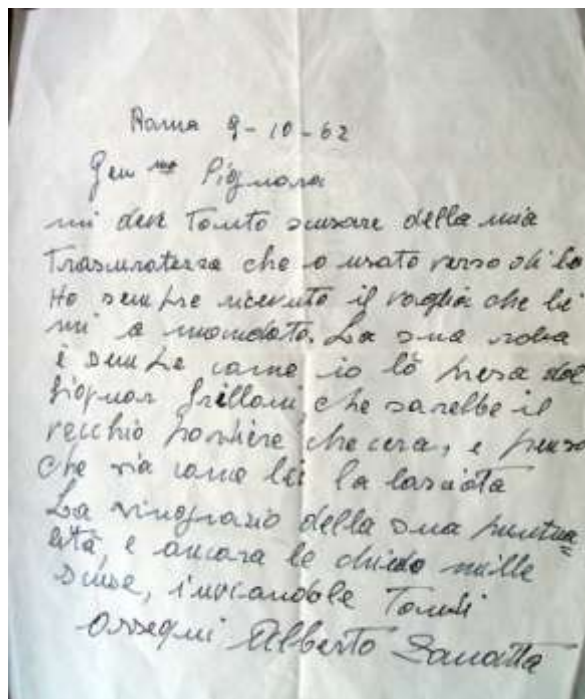 Roma 9-10-62
Gen ma Signora
mi deve Tanto scusare della mia
Trascuratezza che o usato verso di lei
Ho sempre ricevuto il vaglia che lei
mi a mandato. La sua roba
è sempre come io lò presa dal
Signor Grilloni, che sarebbe il
vecchio portiere che cera, e penso
che sia come lei la lasciata
La ringrazio della sua puntua=
lità, e ancora le chiedo mille
scuse, inviandole Tanti
ossequi Alberto Sanatta